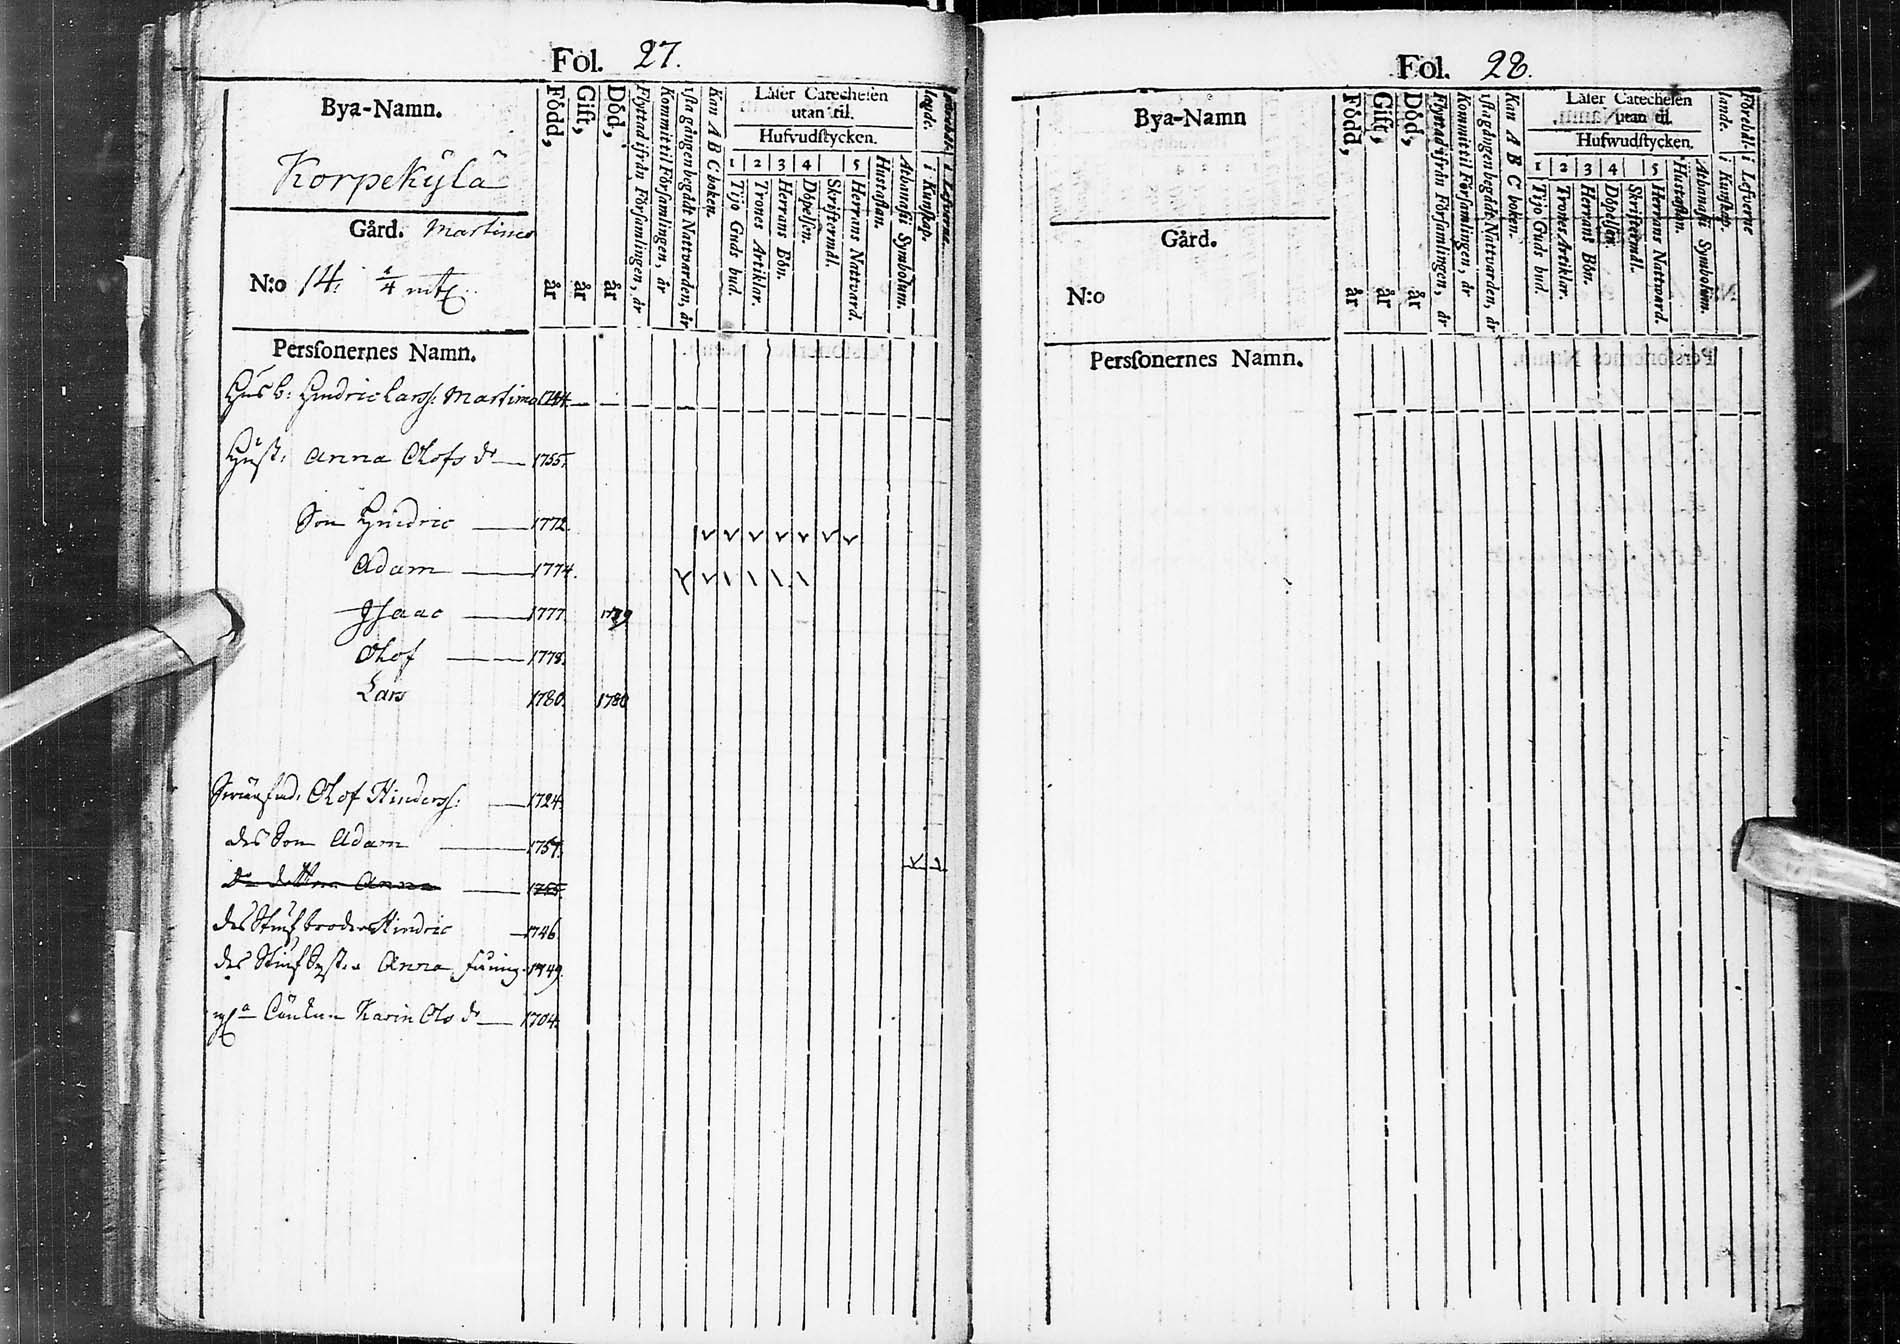 Fol. 27.
Bya-Namn.
Korpekylä
Gård. Martimo
N:o 14. 1/4 mtl
Född, år
Gift, år
Död, år
Flyttad ifrån Församlingen, år
Kommit til Församlingen, år
1sta gången begådt Nattvarden, år
Kan A B C boken.
Låser Catechesen
utan til.
Hufvudstycken.
1 2 3 4 5
Tijo Guds bud.
Trones Artiklar.
Herrans Bön.
Döpelsen.
Skriftermål.
Herrans Nattvard.
Hustaflan.
Athanasii Symbolum.
i Kunskap.
i Lefverne.
Personernes Namn.
Husb: Hindric Larss: Martimo 1744.
Hust: Anna Olofs dr 1755.
Son Hindric 1772.
Adam 1774.
Isaac 1777. 1779
Olof 1778.
Lars 1780. 1780
Olof Hinderss: 1724.
des Son Adam 1757.
do dotter Anna 1755.
des Stiufbroder Hindric 1746.
des Stiufsyster Anna 1749.
Karin Ols dr 1704.
Fol. 28.
Bya-Namn
Gård.
N:o
Född, år
Gift, år
Död, år
Flyttad ifrån Församlingen, år
Kommit til Församlingen, år
1sta gången begådt Natvarden, år
Kan A B C boken.
Låser Catechesen
utan til.
Hufwudstycken.
1 2 3 4 5
Tijo Guds bud.
Trones Artiklar.
Herrans Bön.
Döpelsen
Skriftermål.
Herrans Nattward.
Hustaflan.
Athanasii Symbolum.
i Kunskap.
i Lefverne
Personernes Namn.